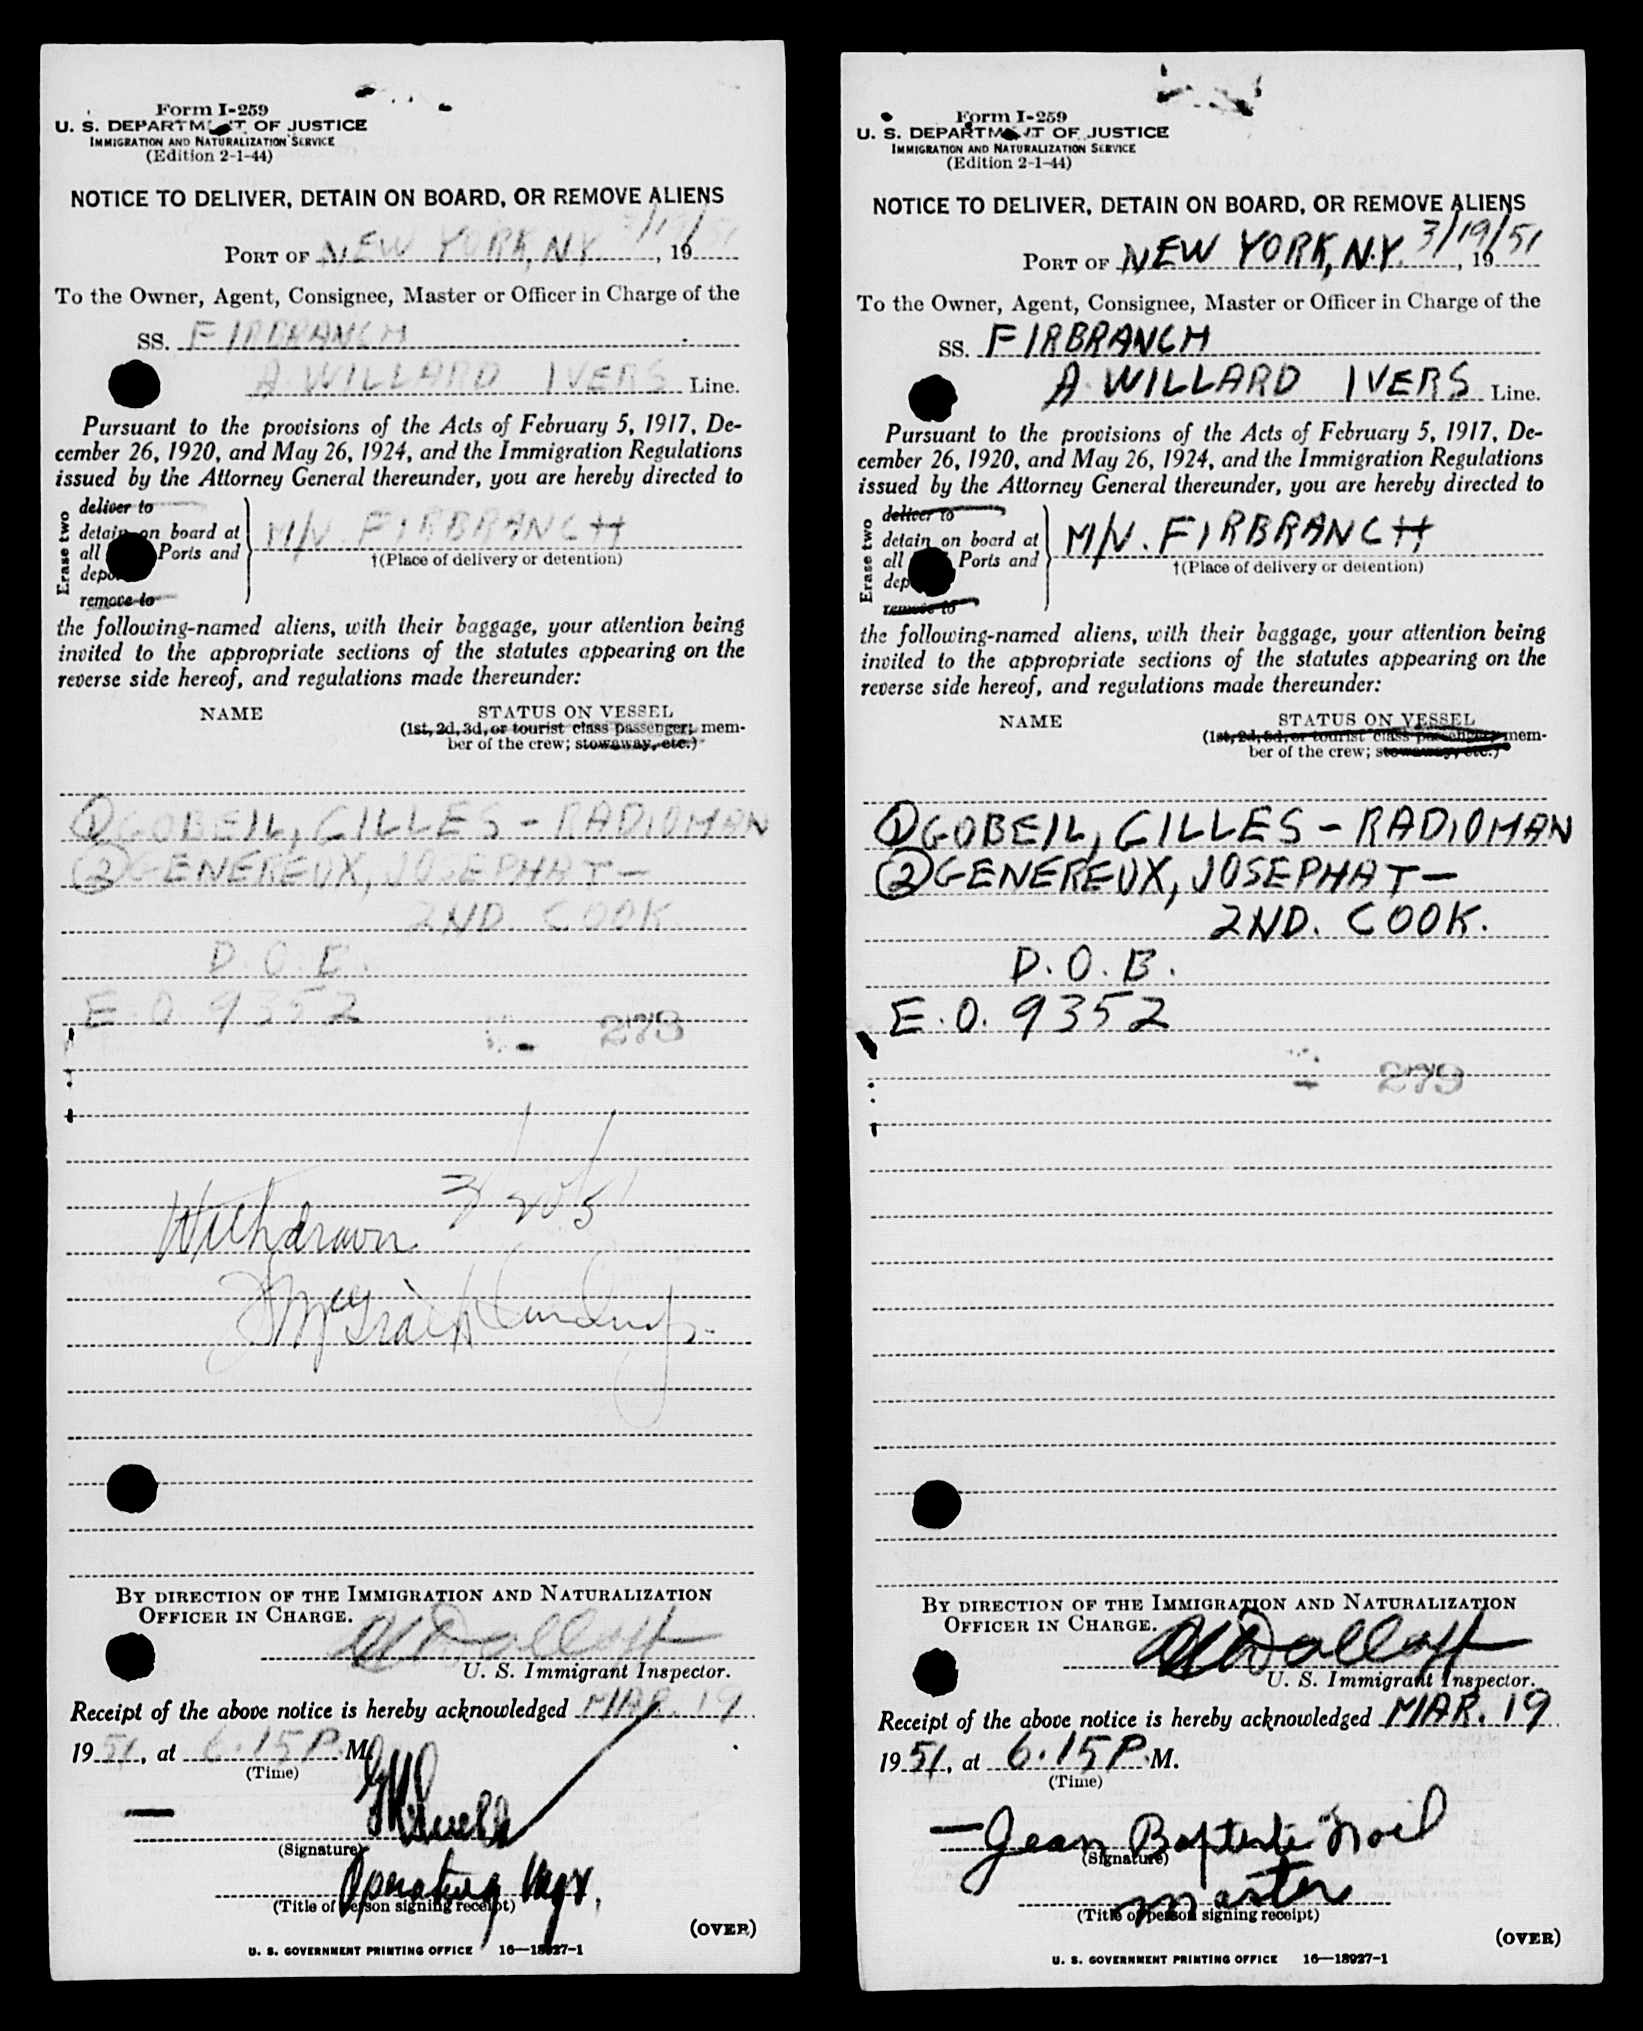 Form I-259
U. S. DEPARTMENT OF JUSTICE
IMMIGRATION AND NATURALIZATION SERVICE
(Edition 2-1-44)
NOTICE TO DELIVER, DETAIN ON BOARD, OR REMOVE ALIENS
PORT OF NEW YORK, N.Y. 3/19/51, 19
To the Owner, Agent, Consignee, Master or Officer in Charge of the
SS. FIRBRANCH
A. WILLARD IVERS Line.
Pursuant to the provisions of the Acts of February 5, 1917, De-
cember 26, 1920, and May 26, 1924, and the Immigration Regulations
issued by the Attorney General thereunder, you are hereby directed to
Erase two
deliver to
detain on board at
all Ports and
remove to
M/V. FIRBRANCH
†(Place of delivery or detention)
the following-named aliens, with their baggage, your attention being
invited to the appropriate sections of the statutes appearing on the
reverse side hereof, and regulations made thereunder:
NAME STATUS ON VESSEL
(1st, 2d, 3d, or tourist class passenger; mem-
ber of the crew; stowaway, etc.)
① GOBEIL, GILLES - RADIOMAN
② GENEREUX, JOSEPHAT -
2ND. COOK.
D.O.B.
E.O. 9352
273
Withdrawn 3/20/51
BY DIRECTION OF THE IMMIGRATION AND NATURALIZATION
OFFICER IN CHARGE.
U. S. Immigrant Inspector.
Receipt of the above notice is hereby acknowledged MAR. 19
19 51, at 6.15 P. M.
(Time)
(Signature)
Operating Mgr.
(Title of person signing receipt)
(OVER)
U. S. GOVERNMENT PRINTING OFFICE 16—18927-1
Form I-259
U. S. DEPARTMENT OF JUSTICE
IMMIGRATION AND NATURALIZATION SERVICE
(Edition 2-1-44)
NOTICE TO DELIVER, DETAIN ON BOARD, OR REMOVE ALIENS
PORT OF NEW YORK, N.Y. 3/19/51, 19
To the Owner, Agent, Consignee, Master or Officer in Charge of the
SS. FIRBRANCH
A. WILLARD IVERS Line.
Pursuant to the provisions of the Acts of February 5, 1917, De-
cember 26, 1920, and May 26, 1924, and the Immigration Regulations
issued by the Attorney General thereunder, you are hereby directed to
Erase two
deliver to
detain on board at
all Ports and
remove to
M/V. FIRBRANCH
†(Place of delivery or detention)
the following-named aliens, with their baggage, your attention being
invited to the appropriate sections of the statutes appearing on the
reverse side hereof, and regulations made thereunder:
NAME STATUS ON VESSEL
(1st, 2d, 3d, or tourist class passenger; mem-
ber of the crew; stowaway, etc.)
① GOBEIL, GILLES - RADIOMAN
② GENEREUX, JOSEPHAT -
2ND. COOK.
D.O.B.
E.O. 9352
279
BY DIRECTION OF THE IMMIGRATION AND NATURALIZATION
OFFICER IN CHARGE.
U. S. Immigrant Inspector.
Receipt of the above notice is hereby acknowledged MAR. 19
19 51, at 6.15 P. M.
(Time)
Jean Baptiste Noil
(Signature)
Master
(Title of person signing receipt)
(OVER)
U. S. GOVERNMENT PRINTING OFFICE 16—18927-1